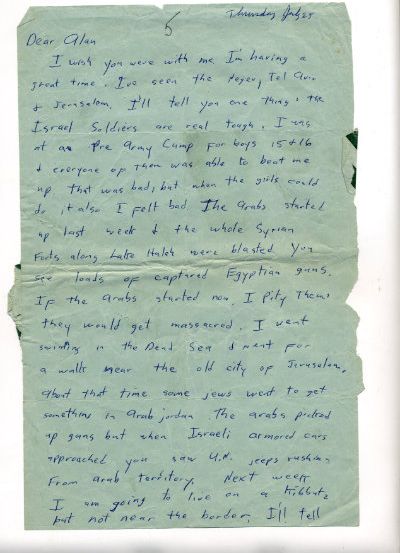 Thursday July 25
5
Dear Alan
I wish you were with me I'm having a
great time. I've seen the Negev, Tel Aviv
& Jerusalem. I'll tell you one thing, the
Israel Soldiers are real tough. I was
at a Pre Army Camp for boys 15 & 16
& everyone of them was able to beat me
up that was bad, but when the girls could
do it also I felt bad The Arabs started
up last week & the whole Syrian
Forts along Lake Huleh were blasted You
see loads of captured Egyptian guns.
If the Arabs started now I Pity Them,
they would get massacred. I went
swimming in the Dead Sea & went for
a walk near the old city of Jerusalem,
about that time some jews went to get
something in Arab jordan The arabs picked
up guns but when Israeli armored cars
approached you saw U.N. jeeps rushing
From Arab territory. Next week
I am going to live on a Kibbutz
but not near the border, I'll tell